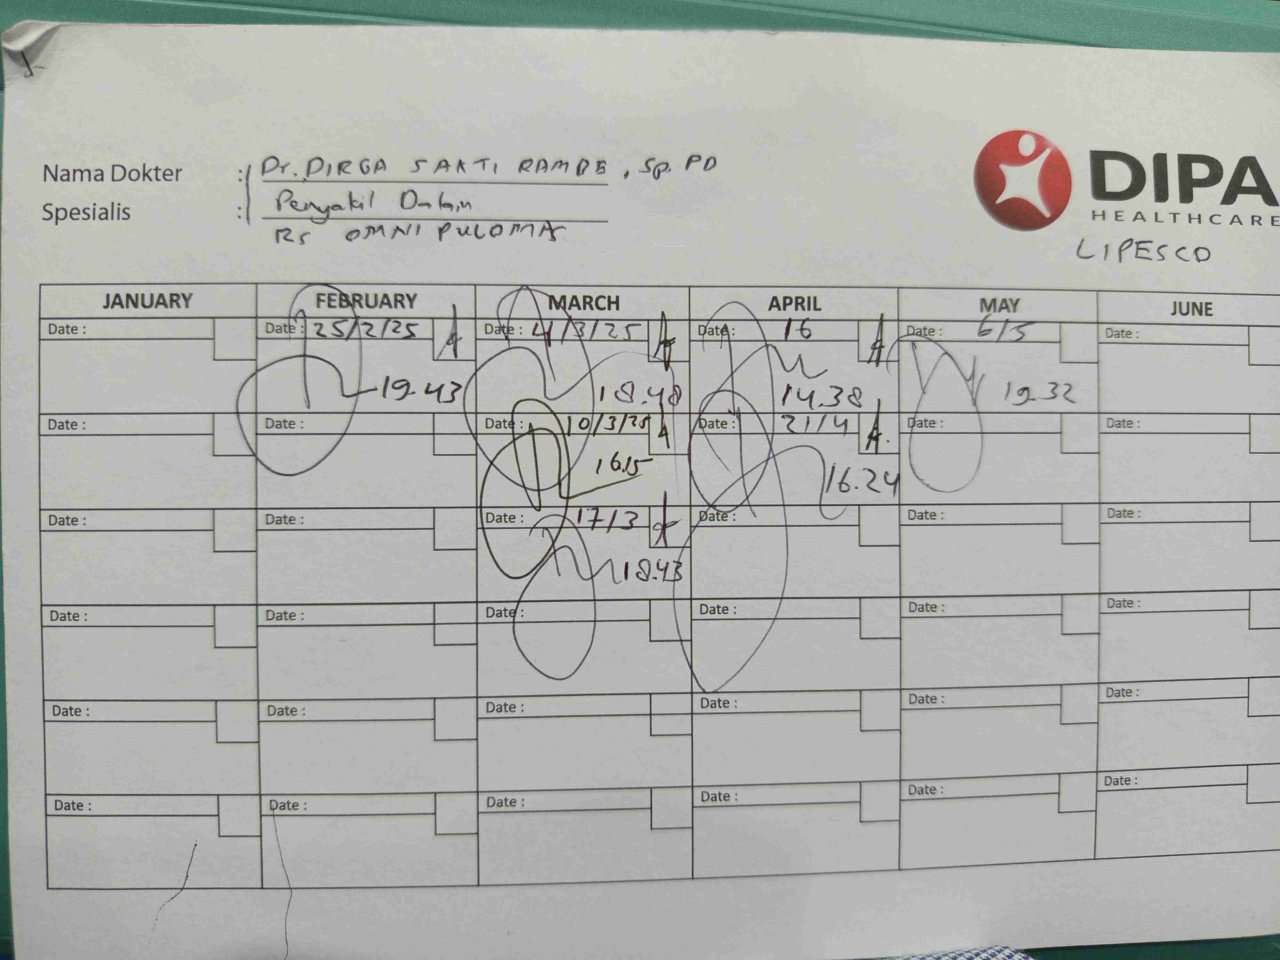 Nama Dokter : Dr. DIRGA SAKTI RAMBE, Sp. PD
Spesialis : Penyakit Dalam
RS OMNI PULOMAS
DIPA
HEALTHCARE
LIPESCO
JANUARY FEBRUARY MARCH APRIL MAY JUNE
Date : Date : 25/2/25 Date : 4/3/25 Date : 16 Date : 6/5 Date :
19.43 18.48 14.38 19.32
Date : Date : Date : 10/3/25 Date : 21/4 Date : Date :
16.15 16.24
Date : Date : Date : 17/3 Date : Date : Date :
18.43
Date : Date : Date : Date : Date : Date :
Date : Date : Date : Date : Date : Date :
Date : Date : Date : Date : Date : Date :